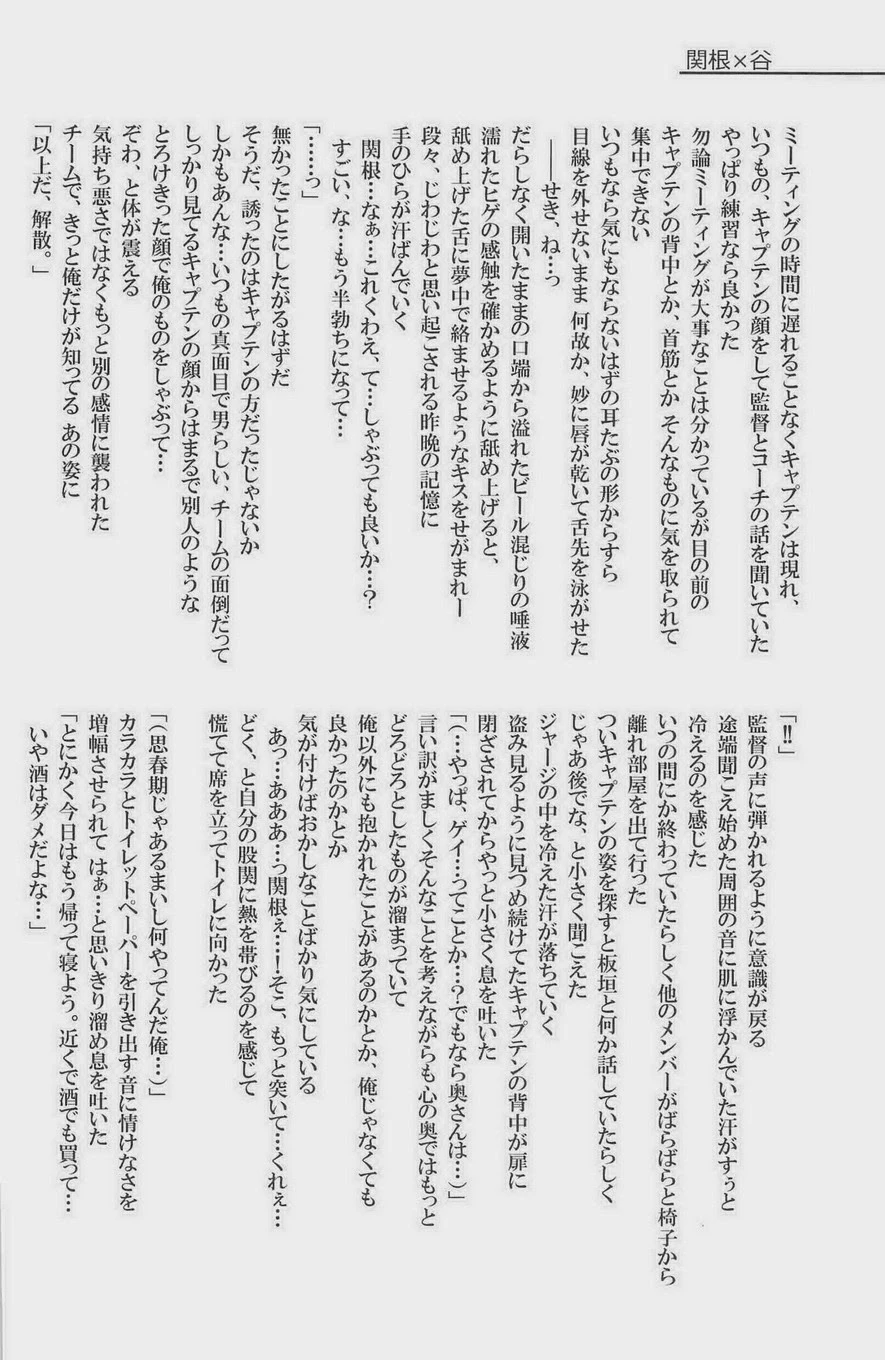 関根×谷
ミーティングの時間に遅れることなくキャプテンは現れ、
いつもの、キャプテンの顔をして監督とコーチの話を聞いていた
やっぱり練習なら良かった
勿論ミーティングが大事なことは分かっているが目の前の
キャプテンの背中とか、首筋とか そんなものに気を取られて
集中できない
いつもなら気にもならないはずの耳たぶの形からすら
目線を外せないまま 何故か、妙に唇が乾いて舌先を泳がせた
――せき、ね…っ
だらしなく開いたままの口端から溢れたビール混じりの唾液
濡れたヒゲの感触を確かめるように舐め上げると、
舐め上げた舌に夢中で絡ませるようなキスをせがまれ―
段々、じわじわと思い起こされる昨晩の記憶に
手のひらが汗ばんでいく
関根…なぁ…これくわえ、て…しゃぶっても良いか…?
すごい、な…もう半勃ちになって…
「……っ」
無かったことにしたがるはずだ
そうだ、誘ったのはキャプテンの方だったじゃないか
しかもあんな…いつもの真面目で男らしい、チームの面倒だって
しっかり見てるキャプテンの顔からはまるで別人のような
とろけきった顔で俺のものをしゃぶって…
ぞわ、と体が震える
気持ち悪さではなくもっと別の感情に襲われた
チームで、きっと俺だけが知ってる あの姿に
「以上だ、解散。」
「!!」
監督の声に弾かれるように意識が戻る
途端聞こえ始めた周囲の音に肌に浮かんでいた汗がすぅと
冷えるのを感じた
いつの間にか終わっていたらしく他のメンバーがばらばらと椅子から
離れ部屋を出て行った
ついキャプテンの姿を探すと板垣と何か話していたらしく
じゃあ後でな、と小さく聞こえた
ジャージの中を冷えた汗が落ちていく
盗み見るように見つめ続けてたキャプテンの背中が扉に
閉ざされてからやっと小さく息を吐いた
「(…やっぱ、ゲイ…ってことか…?でもなら奥さんは…)」
言い訳がましくそんなことを考えながらも心の奥ではもっと
どろどろとしたものが溜まっていて
俺以外にも抱かれたことがあるのかとか、俺じゃなくても
良かったのかとか
気が付けばおかしなことばかり気にしている
あっ…あああ…っ関根ぇ…!そこ、もっと突いて…くれぇ…
どく、と自分の股関に熱を帯びるのを感じて
慌てて席を立ってトイレに向かった
「(思春期じゃあるまいし何やってんだ俺…)」
カラカラとトイレットペーパーを引き出す音に情けなさを
増幅させられて はぁ…と思いきり溜め息を吐いた
「とにかく今日はもう帰って寝よう。近くで酒でも買って…
いや酒はダメだよな…」